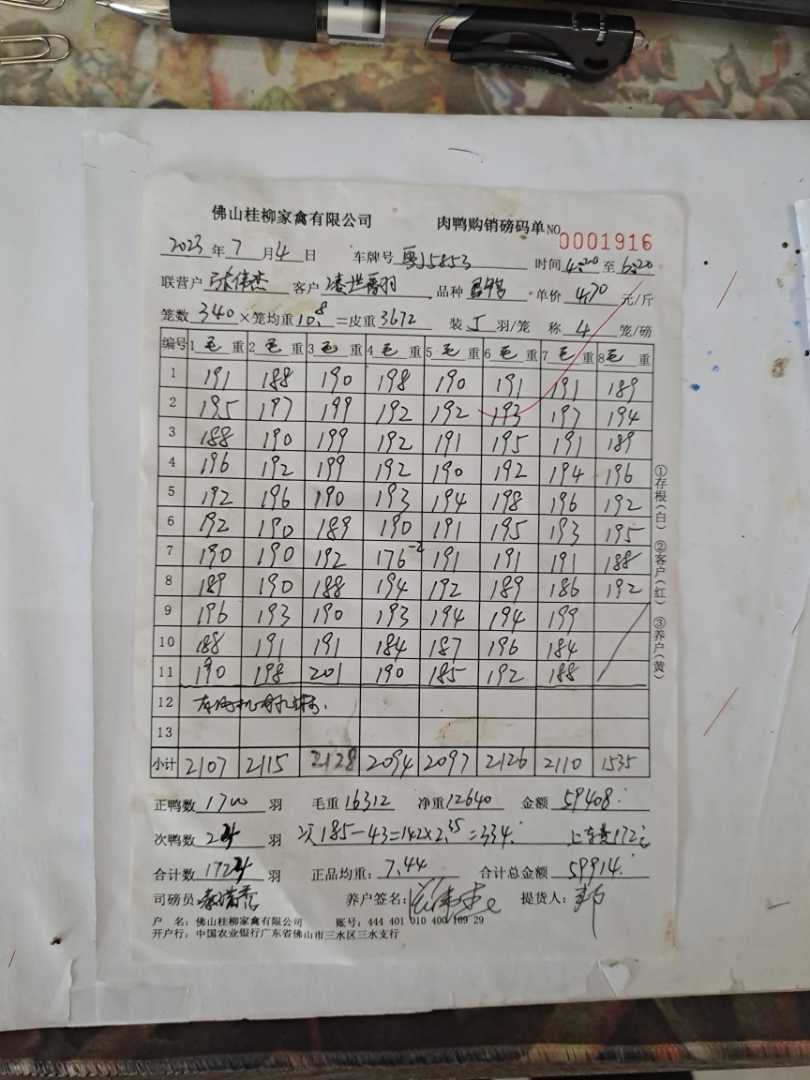 佛山桂柳家禽有限公司 肉鸭购销磅码单 NO 0001916
2023 年 7 月 4 日 车牌号 粤J5853 时间 4:00 至 6:20
联营户 张伟杰 客户 品种 单价 4.70 元/斤
笼数 340 ×笼均重 10.8 =皮重 3672 装 5 羽/笼 称 4 笼/磅
编号 1 毛 重 2 毛 重 3 毛 重 4 毛 重 5 毛 重 6 毛 重 7 毛 重 8 毛 重
1 191 188 190 198 190 191 191 189
2 195 197 199 192 192 193 197 194
3 188 190 199 192 191 195 191 189
4 196 192 199 192 190 192 194 196
5 192 196 190 193 194 198 196 192
6 192 190 189 190 191 195 193 195
7 190 190 192 176-2 191 191 191 188
8 189 190 188 194 192 189 186 192
9 196 193 190 193 194 194 199
10 188 191 191 184 187 196 184
11 190 198 201 190 185 192 188
12
13
小计 2107 2115 2128 2094 2097 2126 2110 1535
正鸭数 1700 羽 毛重 16312 净重 12640 金额 59408.
次鸭数 24 羽 次185-43=142×2.35=334. 上车费172元
合计数 1724 羽 正品均重: 7.44 合计总金额 59914.
司磅员 养户签名: 提货人:
户 名: 佛山桂柳家禽有限公司 账号: 444 401 010 400 169 29
开户行: 中国农业银行广东省佛山市三水区三水支行
①存根(白) ②客户(红) ③养户(黄)